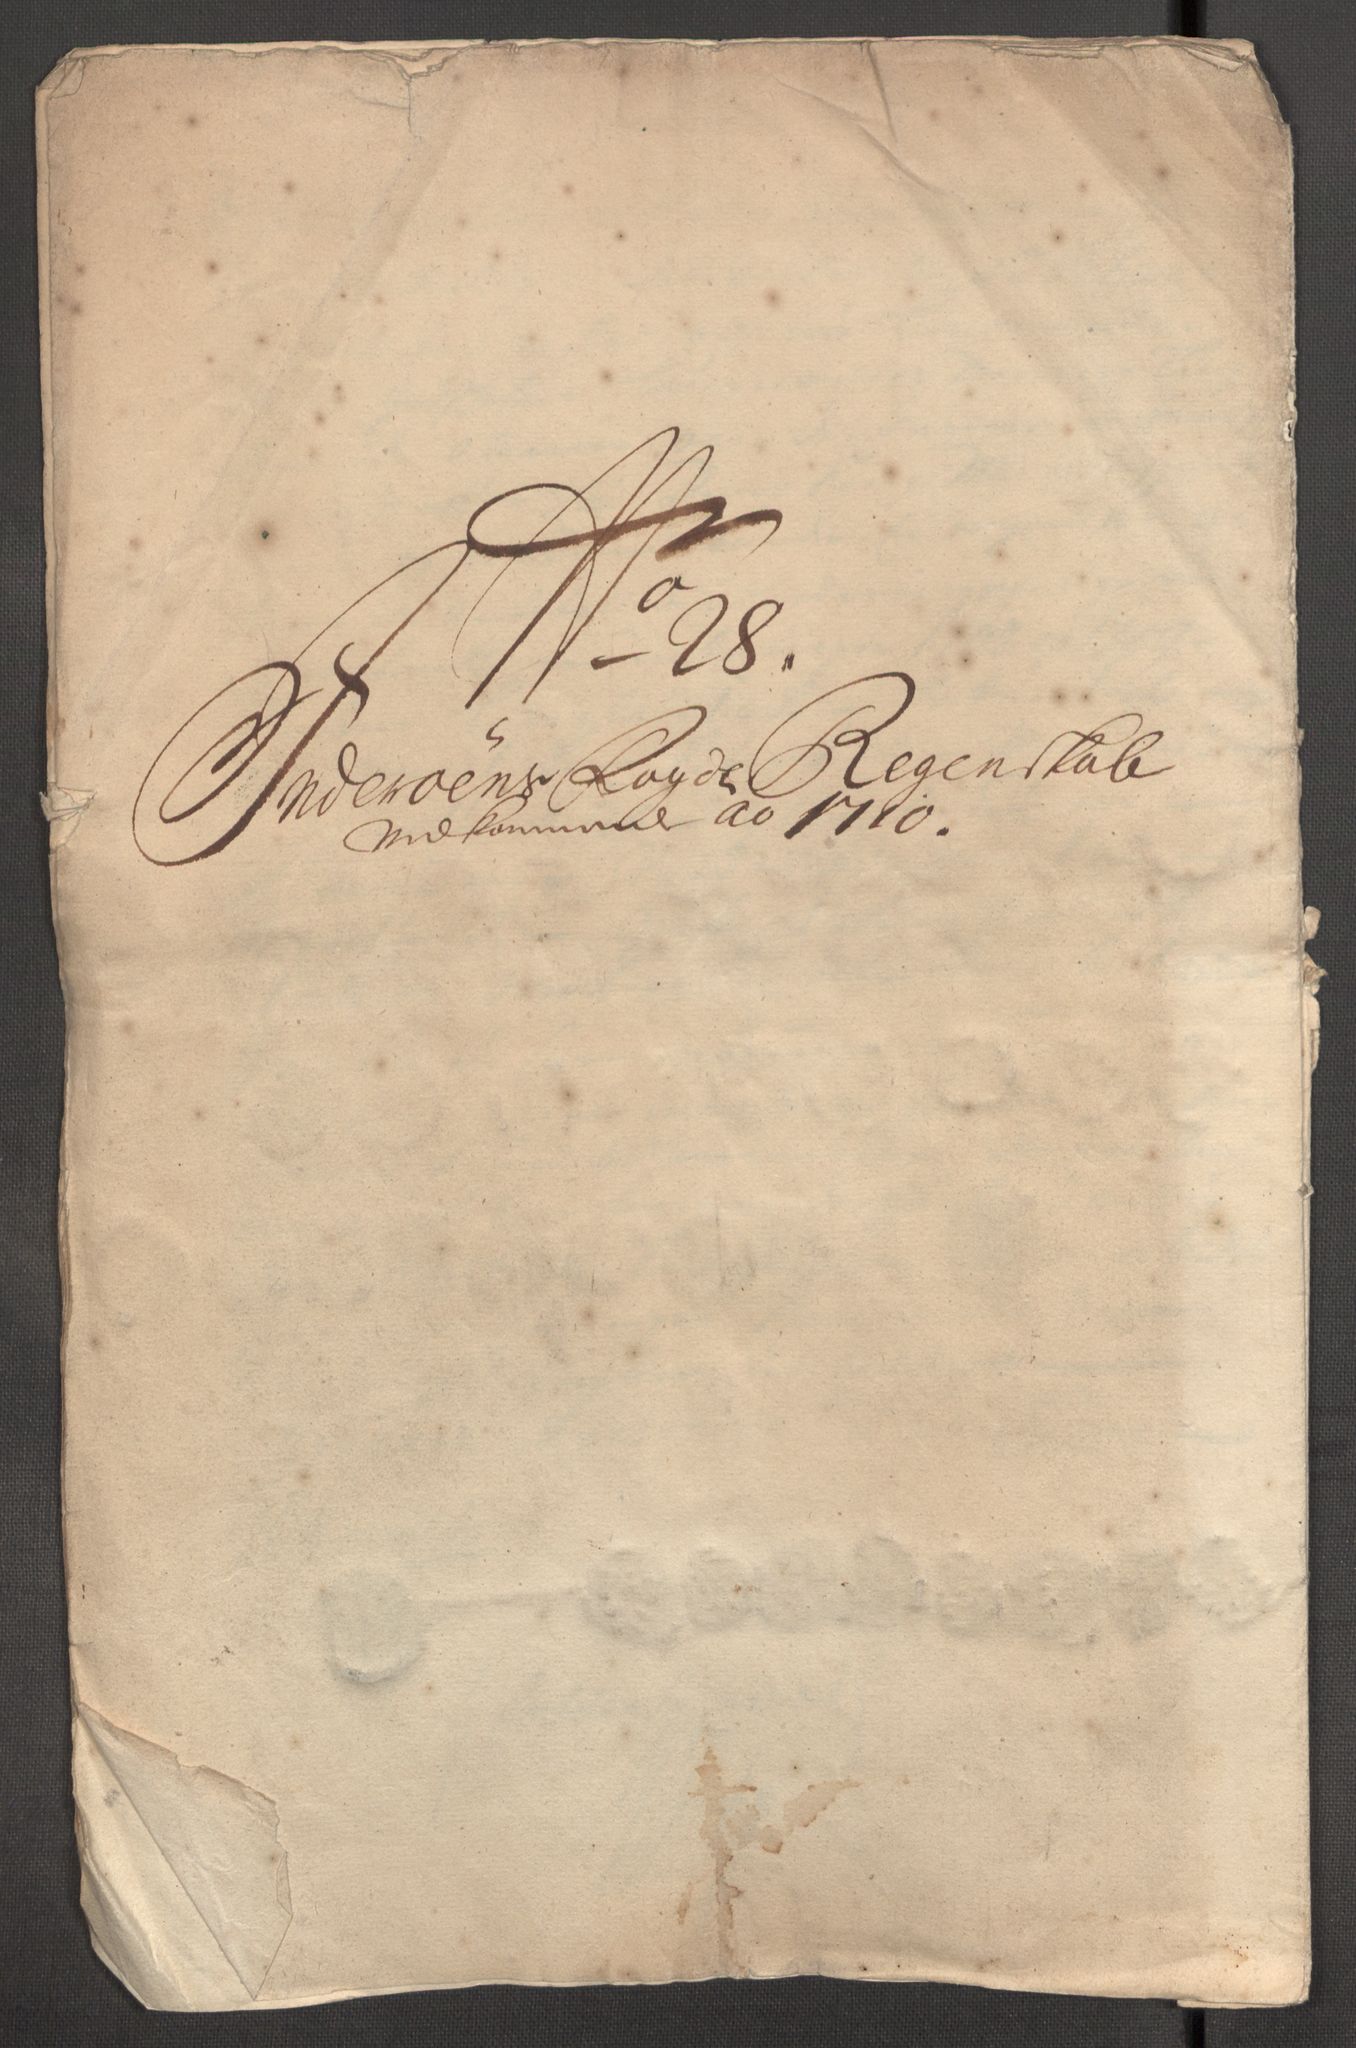 No 28.
Inderøens Fogde Regenskab
Vedkommende ao 1710.